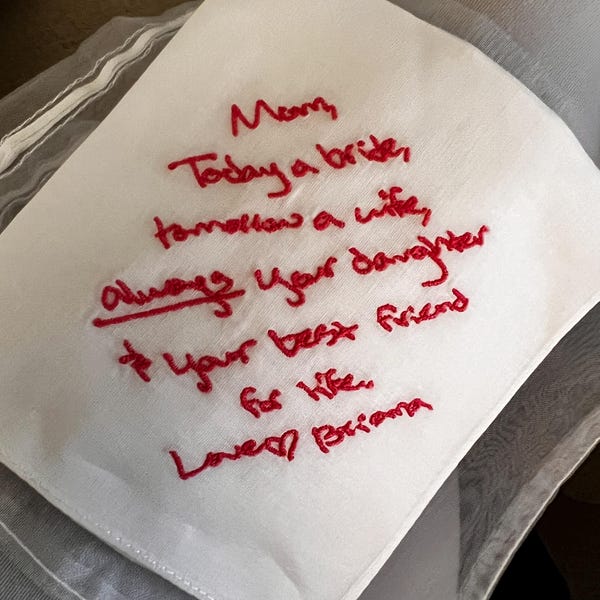 Mom,
Today a bride,
tomorrow a wife,
always your daughter
& your best friend
for life.
Love♡ Briana